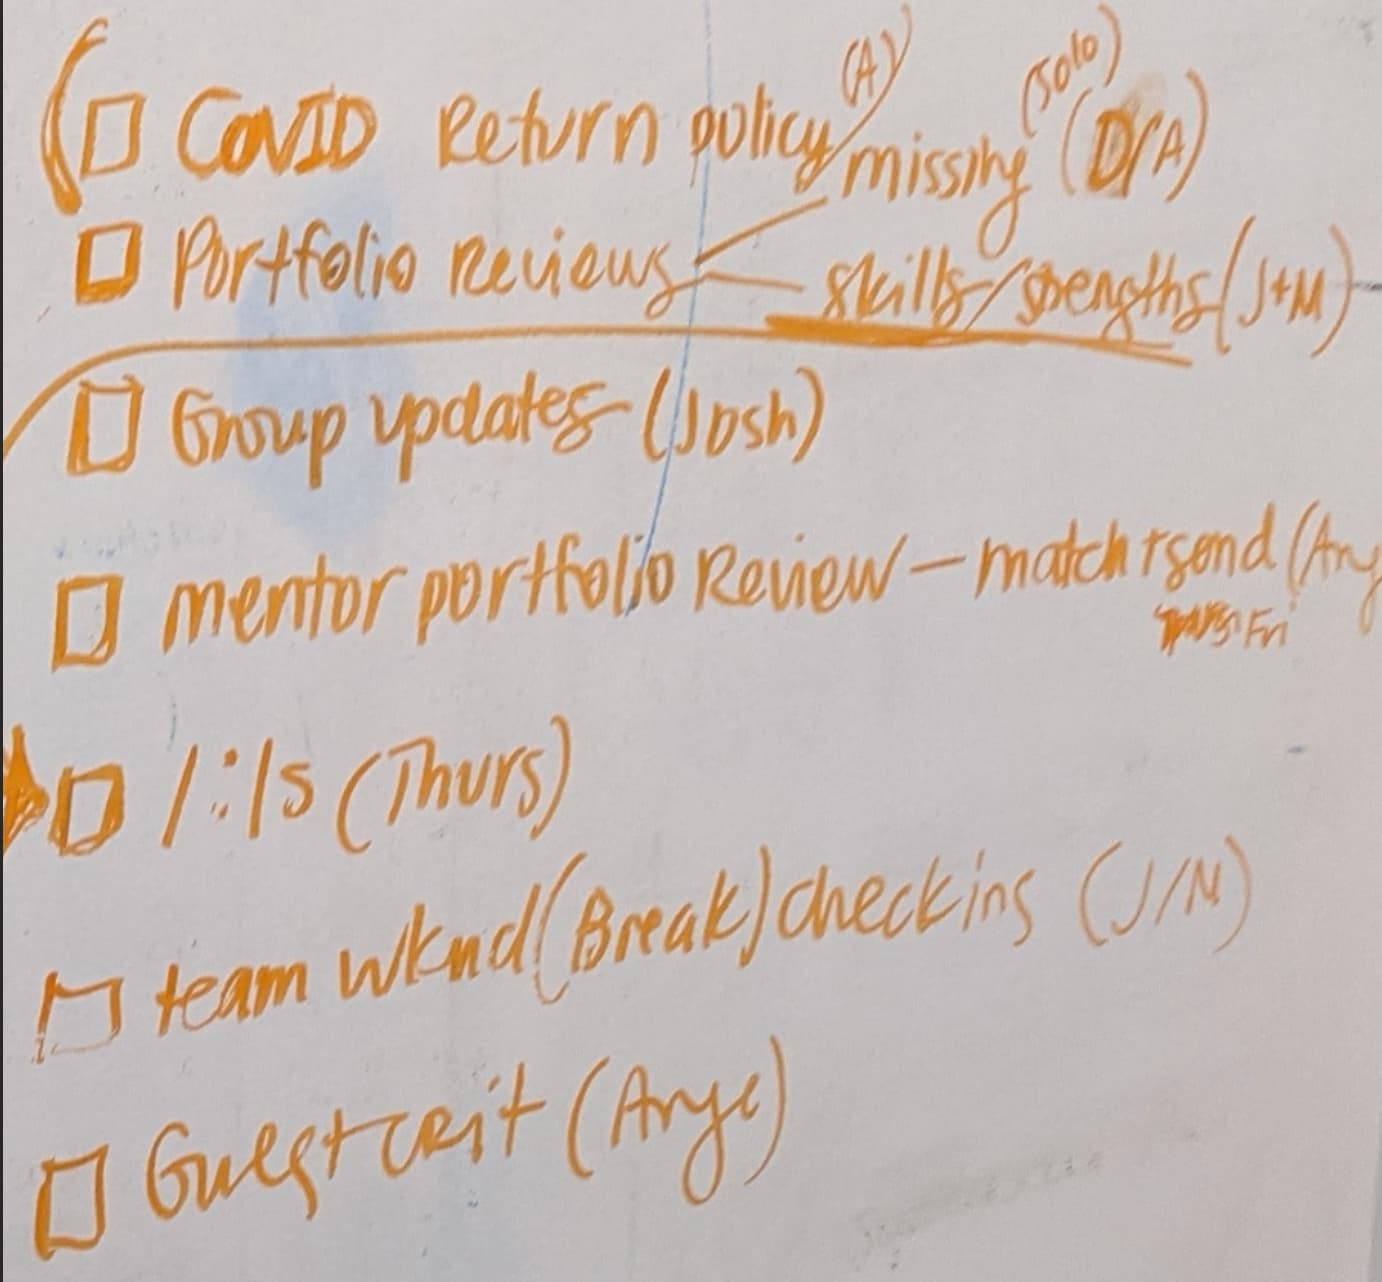 ☐ COVID Return policy (A)
missing (Solo) (D/A)
☐ Portfolio Reviews
skills/strengths (J+M)
☐ Group updates (Josh)
☐ mentor portfolio Review – match + send (Ang
Fri
☐ 1:1s (Thurs)
☐ team wknd (Break) checkins (J/M)
☐ Guest crit (Ange)